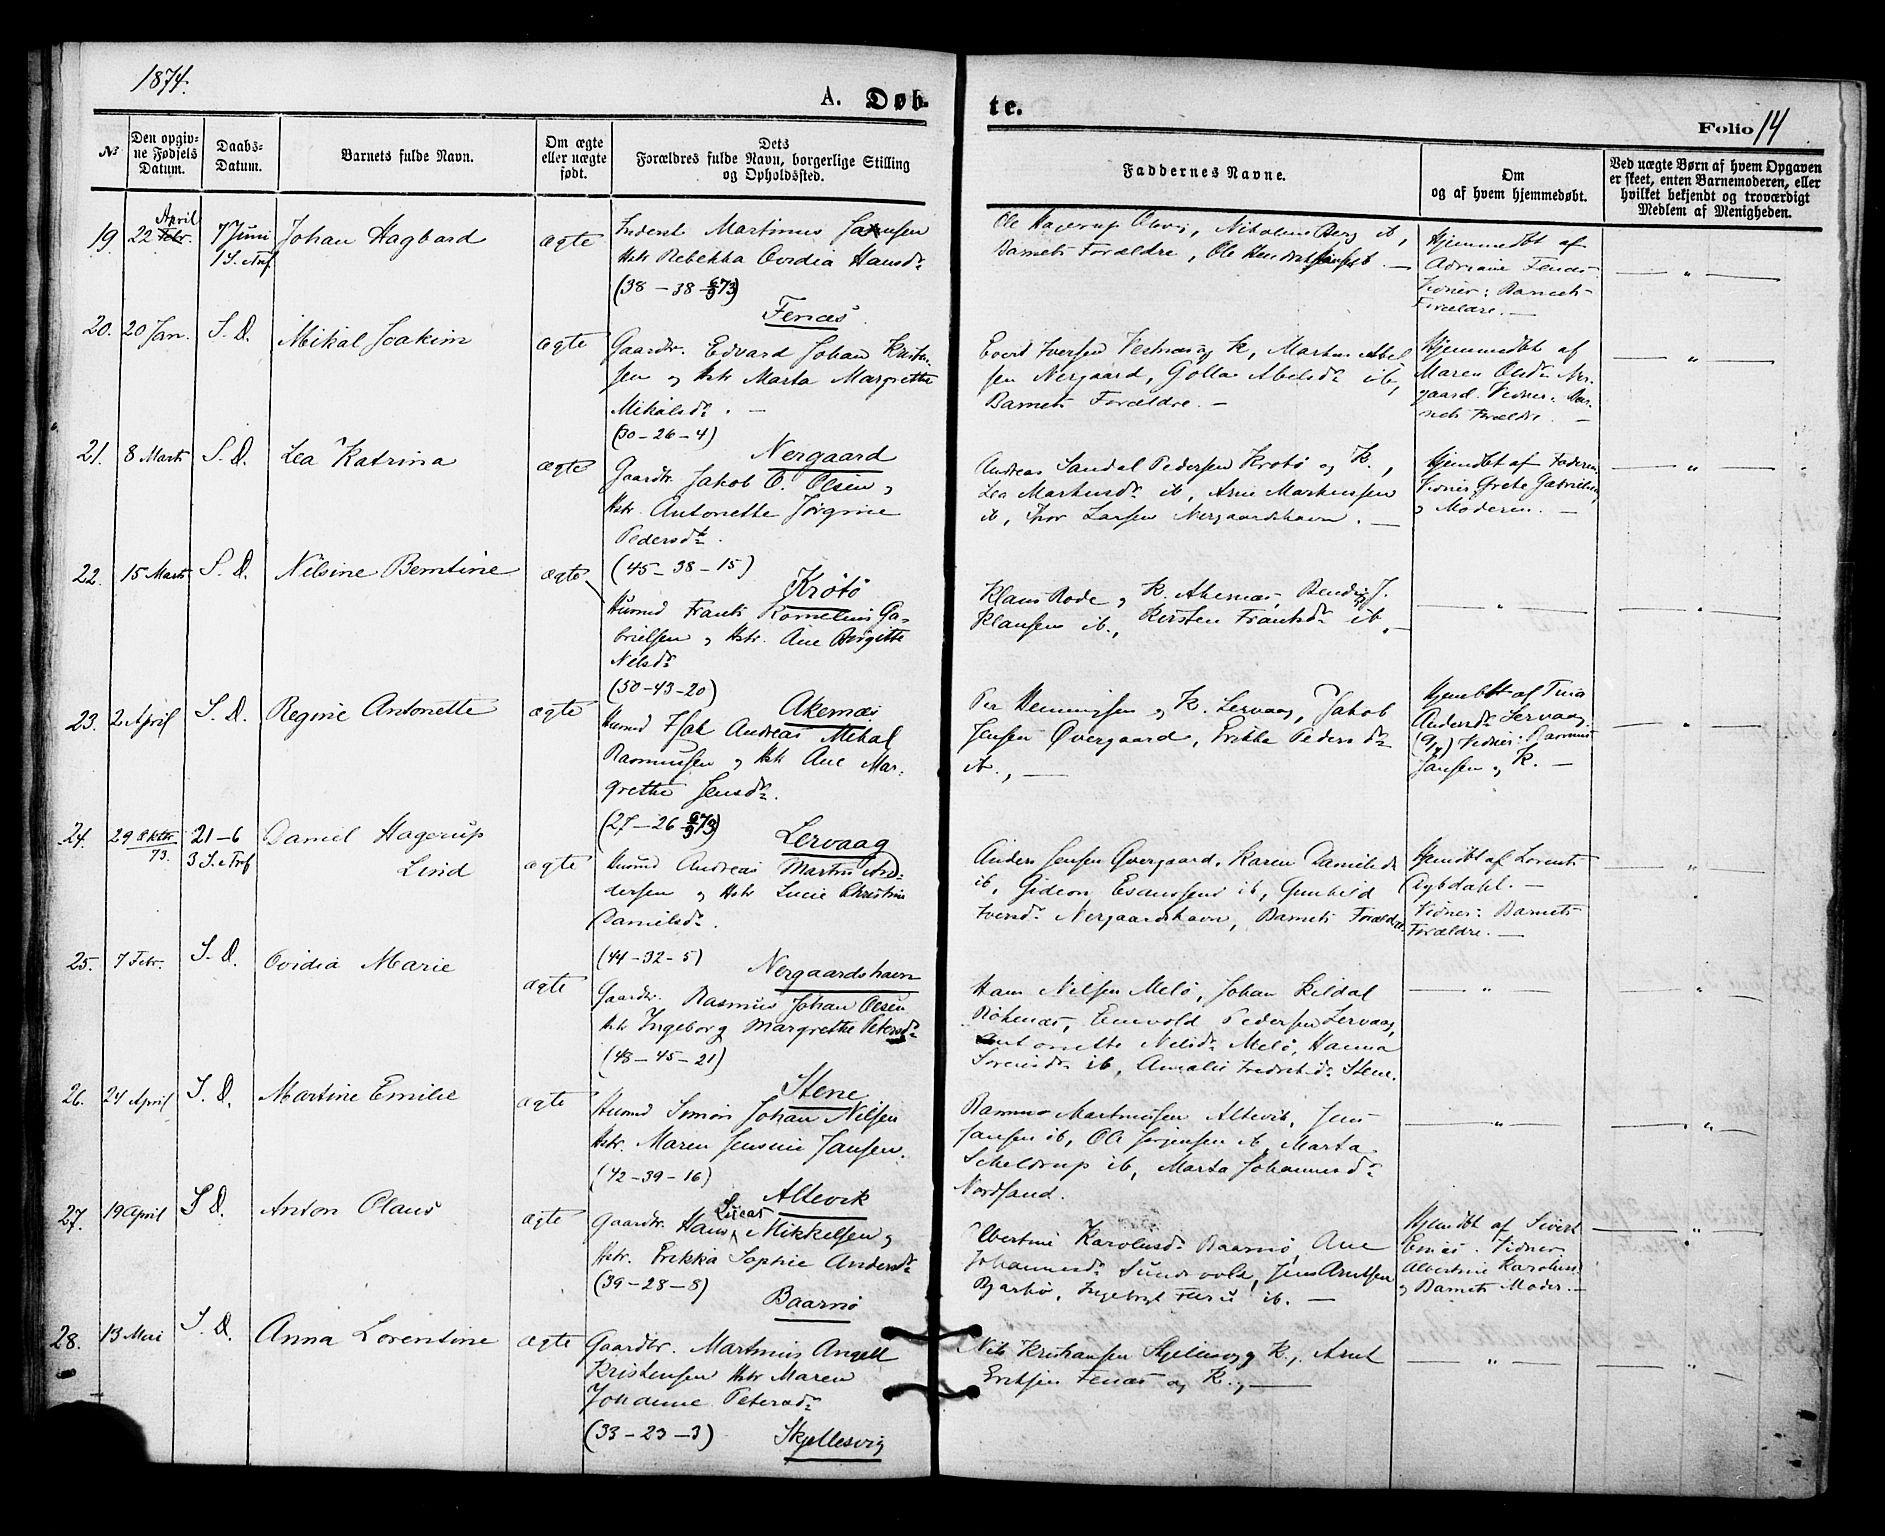 1874.
A. Døb-
te.
Folio 14
№
Den opgiv-
ne Fødsels
Datum.
Daabs-
Datum.
Barnets fulde Navn.
Om ægte
eller uægte
født.
Dets
Forældres fulde Navn, borgerlige Stilling
og Opholdssted.
Faddernes Navne.
Om
og af hvem hjemmedøbt.
Ved uægte Børn af hvem Opgaven
er skeet, enten Barnemoderen, eller
hvilket bekjendt og troværdigt
Medlem af Menigheden.
19. 22 April Febr. 7 Juni
1 S. e. Trf.
Johan Hagbard
ægte
Inderst Martinus Jansen
Hstr Rebekka Ovidia Hansdr
(38 – 38 – 6/9 73)
Fenæs.
Ole Hagerup Olvig, Nikoline Berg ib,
Barnets Forældre, Ole Hendrik
Hjemmedbt af
Adriane Fenæs
Vidner: Barnets
Forældre. —
20. 20 Jan. S. D. Mikal Joakim
ægte
Gaardbr. Edvard Johan Krist-
sen og Hstr Marta Margrethe
Mikalsdr. —
(30 – 26 – 4)
Nergaard
Evert Iversen Vestnæs og K, Martin Abel
sen Nergaard, Golla Abelsdr ib,
Barnets Forældre. —
Hjemmedbt af
Maren Olsdr Ner-
gaard. Vidner: Bar-
nets Forældre. —
21. 8 Marts S. D. Lea Katrina
ægte
Gaardbr. Jakob O. Olsen og
Hstr. Antonette Jørgine
Pedersdtr.
(45 – 38 – 15)
Krøtø
Andreas Sandal Pedersen Krøtø og K.,
Lea Markusdr ib, Arne Markussen
ib, Thor Larsen Nergaardshavn. —
Hjemdbt af Faderen.
Vidner Grete Gabrielsen
og Moderen. —
22. 15 Marts S. D. Nelsine Berntine
ægte
Husmd Frants Kornelius Ga-
brielsen og Hstr. Ane Birgitte
Nelsdr
(50 – 43 – 20)
Akernæs
Klaus Rode og K. Akernæs, Bendig J.
Klausen ib., Kirsten Frantsdr ib. —
23. 2 April S. D. Regine Antonette
ægte
Husmd Isak Andreas Mikal
Rasmussen og Hstr Ane Mar-
grethe Jensdr.
(27 – 26 – 6/9 73)
Lervaag
Per Henningsen og K. Lervaag, Jakob
Jensen Øvergaard, Erikka Pedersdr
ib., —
Hjemdbt af Tina
Andersdr Lervaag
Vidner: Rasmus
Jansen og K. —
24. 29 Oktbr
73. 21–6
3 S. e. Trf
Daniel Hagerup
Lind
ægte
Husmd Andreas Martin An-
dersen og Hstr Lucie Christine
Danielsdr.
(44 – 32 – 5)
Nergaardshavn
Anders Jensen Øvergaard, Karen Danielsdr
ib, Gideon Esaussen ib, Gunhild
Iversdr Nergaardshavn, Barnets Forældre.
Hjemdbt af Lorents
Rybdahl. —
Vidner: Barnets
Forældre. —
25. 7 Febr. S. D. Ovidia Marie
ægte
Gaardbr. Rasmus Johan Olsen
Hstr Ingeborg Margrethe Petersdr
(48 – 45 – 21)
Stene
Hans Nilsen Melø, Johan Kildal
Røkenæs, Enevold Pedersen Lervaag,
Antonette Nelsdr Melø, Hanna
Sørensdr ib, Amalie Fredriksdr Stene.
26. 24 April S. D. Martine Emilie
ægte
Husmd Simon Johan Nilsen
Hstr. Maren Jensine Jansen.
(42 – 39 – 16)
Altevik
Rasmus Martinussen Altevik, Jens
Jansen ib, Ole Jørgensen ib, Marta
Scheldrup ib, Marta Johannesdr
Nordsand.
27. 19 April S. D. Anton Olaus
ægte
Gaardbr. Hans Lucas Mikkelsen og
Hstr. Erikka Sophie Andersdr
(39 – 28 – 8)
Baarnø
Albertine Karolusdr Baarnø, Ane
Johannesdr Sundsvold, Jens Arntsen
Bjarkø, Ingebrigt ib. —
Hjemdbt af Sivert
Vidner
Albertine Karolusdr
og Barnets Moder. —
28. 13 Mai S. D. Anna Lorentine
ægte
Gaardbr. Martinus Angell
Kristensen Hstr Maren
Johanne Petersdr
(33 – 23 – 3)
Skjellesvig
Nils Kristiansen Skjellesvig og K., Arnt
Eriksen Fenæs og K., —